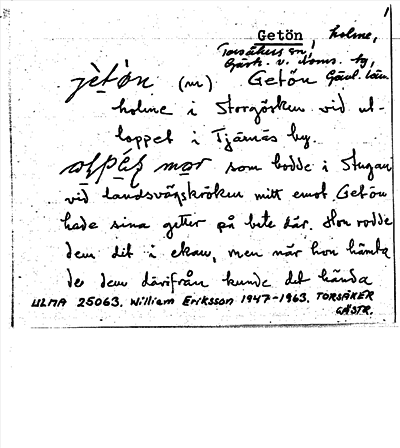 1
Getön, holme,
Torsåkers sn,
Gästr. v. doms. hg, Gävl. län
jètön (m) Getön
holme i Storgösken vid ut-
loppet i Tjärnäs by.
mor som bodde i Stugan
vid landsvägskröken mitt emot Getön
hade sina getter på bete där. Hon rodde
dem dit i ekan, men när hon hämta
de dem därifrån kunde det hända
ULMA 25063. William Eriksson 1947-1963. TORSÅKER
GÄSTR.